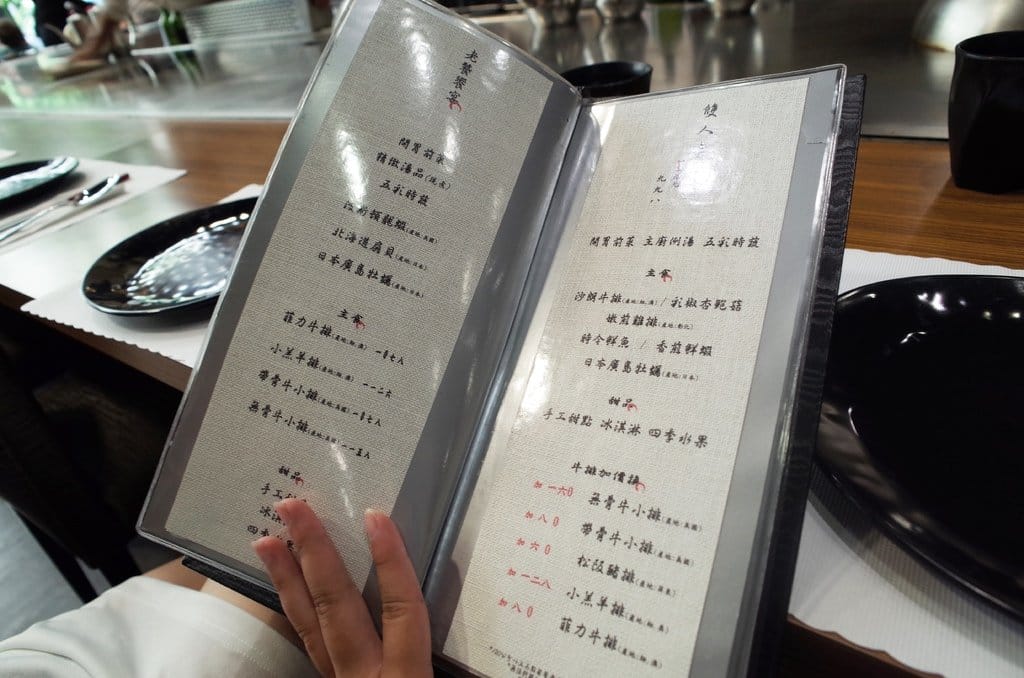 老饕饗宴
開胃前菜
精緻湯品
五彩時蔬
頓龍蝦(產地:美國)
北海道扇貝(產地:日本)
日本廣島牡蠣(產地:日本)
主食
菲力牛排 一0七八
小羔羊排 一一二六
帶骨牛小排(產地:美國) 一0七八
無骨牛小排(產地:美國) 一一五八
甜品
手工
冰淇
四季 果
雙人
九九八
開胃前菜 主廚例湯 五彩時蔬
主食
沙朗牛排 / 彩椒杏鮑菇
嫩煎雞排(產地:彰化)
時令鮮魚 / 香煎鮮蝦
日本廣島牡蠣(產地:日本)
甜品
手工甜點 冰淇淋 四季水果
牛排加價換
加一六0 無骨牛小排(產地:美國)
加八0 帶骨牛小排(產地:美國)
加六0 松阪豬排(產地:屏東)
加一二八 小羔羊排
加八0 菲力牛排